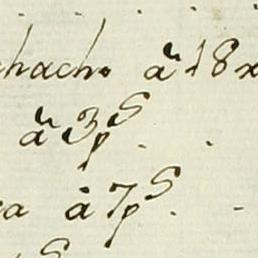 chacho ã 18x
ã 3p^s
ca à 7p^s